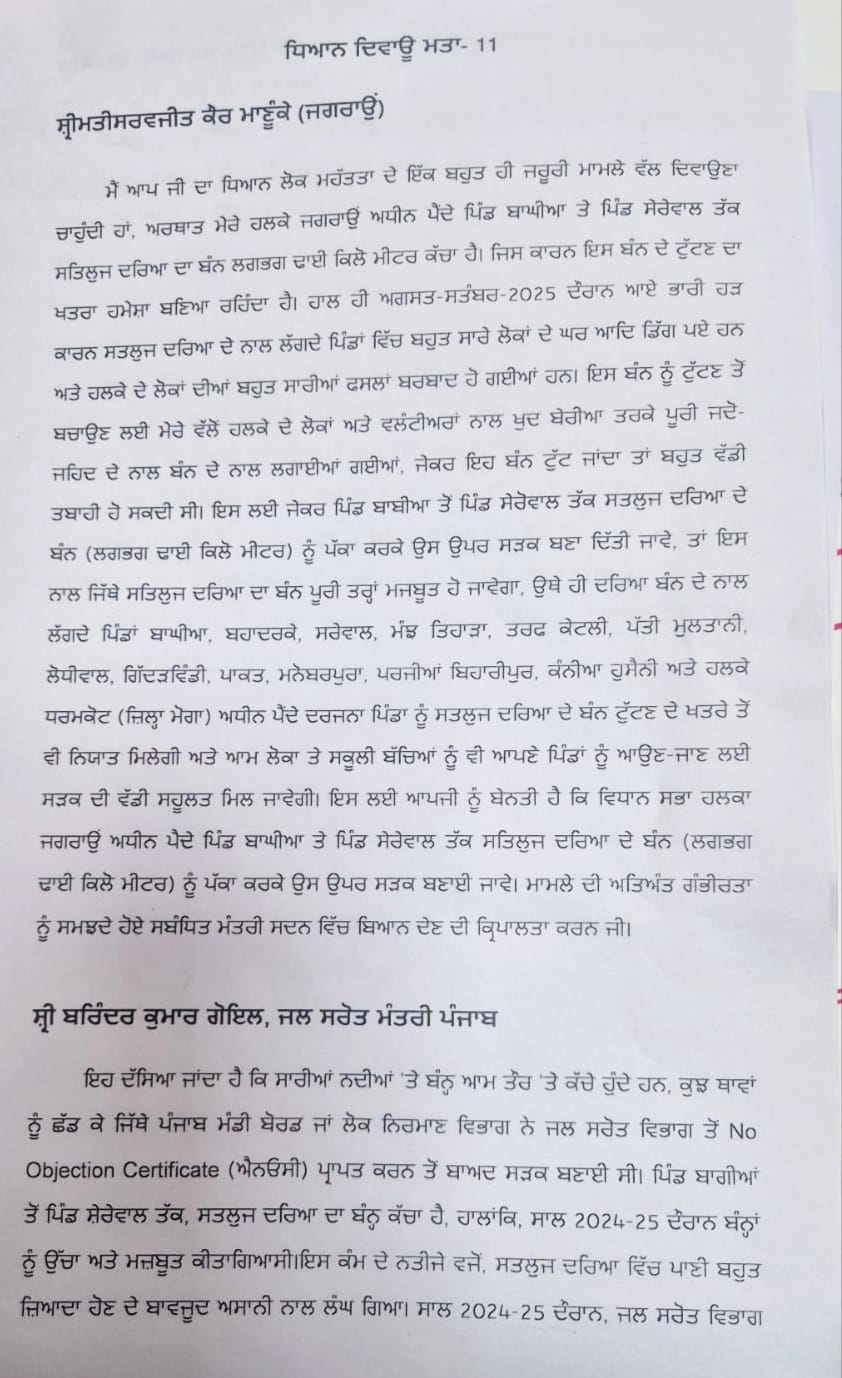 ਧਿਆਨ ਦਿਵਾਊ ਮਤਾ- 11
ਸ਼੍ਰੀਮਤੀਸਰਵਜੀਤ ਕੌਰ ਮਾਣੂੰਕੇ (ਜਗਰਾਉਂ)
ਮੈਂ ਆਪ ਜੀ ਦਾ ਧਿਆਨ ਲੋਕ ਮਹੱਤਤਾ ਦੇ ਇੱਕ ਬਹੁਤ ਹੀ ਜਰੂਰੀ ਮਾਮਲੇ ਵੱਲ ਦਿਵਾਉਣਾ
ਚਾਹੁੰਦੀ ਹਾਂ, ਅਰਥਾਤ ਮੇਰੇ ਹਲਕੇ ਜਗਰਾਉਂ ਅਧੀਨ ਪੈਂਦੇ ਪਿੰਡ ਬਾਘੀਆ ਤੇ ਪਿੰਡ ਸੇਰੇਵਾਲ ਤੱਕ
ਸਤਿਲੁਜ ਦਰਿਆ ਦਾ ਬੰਨ ਲਗਭਗ ਢਾਈ ਕਿਲੋ ਮੀਟਰ ਕੱਚਾ ਹੈ। ਜਿਸ ਕਾਰਨ ਇਸ ਬੰਨ ਦੇ ਟੁੱਟਣ ਦਾ
ਖਤਰਾ ਹਮੇਸ਼ਾ ਬਣਿਆ ਰਹਿੰਦਾ ਹੈ। ਹਾਲ ਹੀ ਅਗਸਤ-ਸਤੰਬਰ-2025 ਦੌਰਾਨ ਆਏ ਭਾਰੀ ਹੜ
ਕਾਰਨ ਸਤਲੁਜ ਦਰਿਆ ਦੇ ਨਾਲ ਲੱਗਦੇ ਪਿੰਡਾਂ ਵਿੱਚ ਬਹੁਤ ਸਾਰੇ ਲੋਕਾਂ ਦੇ ਘਰ ਆਦਿ ਡਿੱਗ ਪਏ ਹਨ
ਅਤੇ ਹਲਕੇ ਦੇ ਲੋਕਾਂ ਦੀਆਂ ਬਹੁਤ ਸਾਰੀਆਂ ਫਸਲਾਂ ਬਰਬਾਦ ਹੋ ਗਈਆਂ ਹਨ। ਇਸ ਬੰਨ ਨੂੰ ਟੁੱਟਣ ਤੋਂ
ਬਚਾਉਣ ਲਈ ਮੇਰੇ ਵੱਲੋਂ ਹਲਕੇ ਦੇ ਲੋਕਾਂ ਅਤੇ ਵਲੰਟੀਅਰਾਂ ਨਾਲ ਖੁਦ ਬੇਰੀਆ ਤਰਕੇ ਪੂਰੀ ਜਦੋ-
ਜਹਿਦ ਦੇ ਨਾਲ ਬੰਨ ਦੇ ਨਾਲ ਲਗਾਈਆਂ ਗਈਆਂ, ਜੇਕਰ ਇਹ ਬੰਨ ਟੁੱਟ ਜਾਂਦਾ ਤਾਂ ਬਹੁਤ ਵੱਡੀ
ਤਬਾਹੀ ਹੋ ਸਕਦੀ ਸੀ। ਇਸ ਲਈ ਜੇਕਰ ਪਿੰਡ ਬਾਬੀਆ ਤੋਂ ਪਿੰਡ ਸੇਰੋਵਾਲ ਤੱਕ ਸਤਲੁਜ ਦਰਿਆ ਦੇ
ਬੰਨ (ਲਗਭਗ ਢਾਈ ਕਿਲੋ ਮੀਟਰ) ਨੂੰ ਪੱਕਾ ਕਰਕੇ ਉਸ ਉਪਰ ਸੜਕ ਬਣਾ ਦਿੱਤੀ ਜਾਵੇ, ਤਾਂ ਇਸ
ਨਾਲ ਜਿੱਥੇ ਸਤਿਲੁਜ ਦਰਿਆ ਦਾ ਬੰਨ ਪੂਰੀ ਤਰ੍ਹਾਂ ਮਜਬੂਤ ਹੋ ਜਾਵੇਗਾ, ਉਥੇ ਹੀ ਦਰਿਆ ਬੰਨ ਦੇ ਨਾਲ
ਲੱਗਦੇ ਪਿੰਡਾਂ ਬਾਘੀਆ, ਬਹਾਦਰਕੇ, ਸਰੇਵਾਲ, ਮੰਝ ਤਿਹਾੜਾ, ਤਰਫ ਕੇਟਲੀ, ਪੱਤੀ ਮੁਲਤਾਨੀ,
ਲੋਧੀਵਾਲ, ਗਿੱਦੜਵਿੰਡੀ, ਪਾਕਤ, ਮਨੇਬਰਪੁਰਾ, ਪਰਜੀਆਂ ਬਿਹਾਰੀਪੁਰ, ਕੰਨੀਆ ਹੁਸੈਨੀ ਅਤੇ ਹਲਕੇ
ਧਰਮਕੋਟ (ਜ਼ਿਲ੍ਹਾ ਮੋਗਾ) ਅਧੀਨ ਪੈਂਦੇ ਦਰਜਨਾ ਪਿੰਡਾ ਨੂੰ ਸਤਲੁਜ ਦਰਿਆ ਦੇ ਬੰਨ ਟੁੱਟਣ ਦੇ ਖਤਰੇ ਤੋਂ
ਵੀ ਨਿਯਾਤ ਮਿਲੇਗੀ ਅਤੇ ਆਮ ਲੋਕਾ ਤੇ ਸਕੂਲੀ ਬੱਚਿਆਂ ਨੂੰ ਵੀ ਆਪਣੇ ਪਿੰਡਾਂ ਨੂੰ ਆਉਣ-ਜਾਣ ਲਈ
ਸੜਕ ਦੀ ਵੱਡੀ ਸਹੂਲਤ ਮਿਲ ਜਾਵੇਗੀ। ਇਸ ਲਈ ਆਪਜੀ ਨੂੰ ਬੇਨਤੀ ਹੈ ਕਿ ਵਿਧਾਨ ਸਭਾ ਹਲਕਾ
ਜਗਰਾਉਂ ਅਧੀਨ ਪੈਦੇ ਪਿੰਡ ਬਾਘੀਆ ਤੇ ਪਿੰਡ ਸੇਰੇਵਾਲ ਤੱਕ ਸਤਿਲੁਜ ਦਰਿਆ ਦੇ ਬੰਨ (ਲਗਭਗ
ਢਾਈ ਕਿਲੋ ਮੀਟਰ) ਨੂੰ ਪੱਕਾ ਕਰਕੇ ਉਸ ਉਪਰ ਸੜਕ ਬਣਾਈ ਜਾਵੇ। ਮਾਮਲੇ ਦੀ ਅਤਿਅੰਤ ਗੰਭੀਰਤਾ
ਨੂੰ ਸਮਝਦੇ ਹੋਏ ਸਬੰਧਿਤ ਮੰਤਰੀ ਸਦਨ ਵਿੱਚ ਬਿਆਨ ਦੇਣ ਦੀ ਕ੍ਰਿਪਾਲਤਾ ਕਰਨ ਜੀ।
ਸ਼੍ਰੀ ਬਰਿੰਦਰ ਕੁਮਾਰ ਗੋਇਲ, ਜਲ ਸਰੋਤ ਮੰਤਰੀ ਪੰਜਾਬ
ਇਹ ਦੱਸਿਆ ਜਾਂਦਾ ਹੈ ਕਿ ਸਾਰੀਆਂ ਨਦੀਆਂ 'ਤੇ ਬੰਨ੍ਹ ਆਮ ਤੌਰ 'ਤੇ ਕੱਚੇ ਹੁੰਦੇ ਹਨ, ਕੁਝ ਥਾਵਾਂ
ਨੂੰ ਛੱਡ ਕੇ ਜਿੱਥੇ ਪੰਜਾਬ ਮੰਡੀ ਬੋਰਡ ਜਾਂ ਲੋਕ ਨਿਰਮਾਣ ਵਿਭਾਗ ਨੇ ਜਲ ਸਰੋਤ ਵਿਭਾਗ ਤੋਂ No
Objection Certificate (ਐਨਓਸੀ) ਪ੍ਰਾਪਤ ਕਰਨ ਤੋਂ ਬਾਅਦ ਸੜਕ ਬਣਾਈ ਸੀ। ਪਿੰਡ ਬਾਗੀਆਂ
ਤੋਂ ਪਿੰਡ ਸ਼ੇਰੇਵਾਲ ਤੱਕ, ਸਤਲੁਜ ਦਰਿਆ ਦਾ ਬੰਨ੍ਹ ਕੱਚਾ ਹੈ, ਹਾਲਾਂਕਿ, ਸਾਲ 2024-25 ਦੌਰਾਨ ਬੰਨ੍ਹਾਂ
ਨੂੰ ਉੱਚਾ ਅਤੇ ਮਜ਼ਬੂਤ ਕੀਤਾਗਿਆਸੀ।ਇਸ ਕੰਮ ਦੇ ਨਤੀਜੇ ਵਜੋਂ, ਸਤਲੁਜ ਦਰਿਆ ਵਿੱਚ ਪਾਣੀ ਬਹੁਤ
ਜ਼ਿਆਦਾ ਹੋਣ ਦੇ ਬਾਵਜੂਦ ਅਸਾਨੀ ਨਾਲ ਲੰਘ ਗਿਆ। ਸਾਲ 2024-25 ਦੌਰਾਨ, ਜਲ ਸਰੋਤ ਵਿਭਾਗ